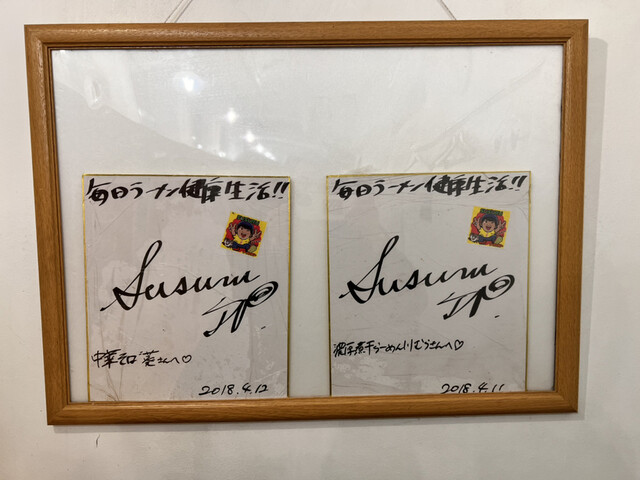 毎日ラーメン健康生活!!
Susuru
中華そば 葵さんへ♡
2018.4.12
毎日ラーメン健康生活!!
Susuru
濃厚煮干らーめん川むらさんへ♡
2018.4.11